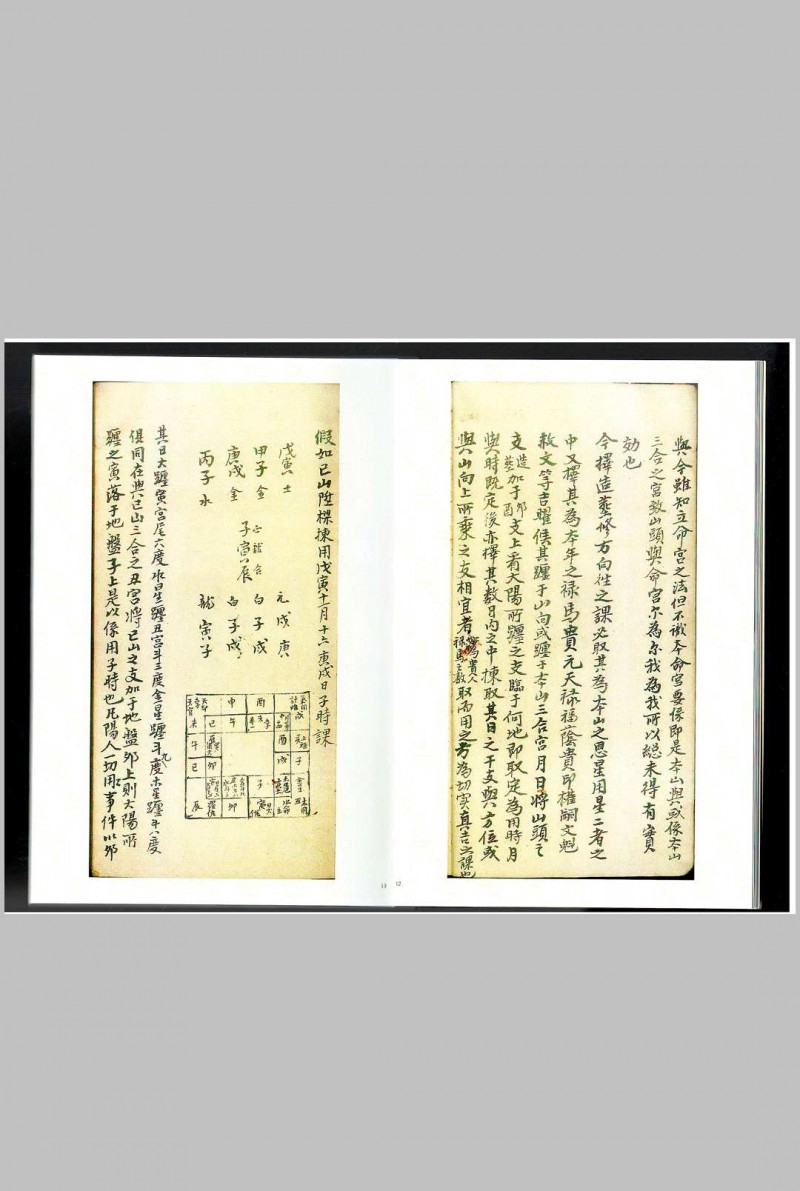 與今雖知立命宮之法但不識本命宮要係即是本山與或係本山
三合之宮致山頭與命宮尔為尔我為我所以總未得有實
効也
今擇造葬修方向往之課必取其為本山之恩星用星二者之
中又擇其為本年之禄馬貴元天禄福蔭貴印權嗣文魁
敕文等吉曜候其躔于山向或躔于本山三合宮月日將山頭之
支造葬加于卯酉支上看太陽所躔之支臨于何地即取定為用時月
與時既定後亦擇其数日内之中棟取其日之干支與六方位或
與山向上所乘之支相宜者禄馬貴人取而用之方為切实真吉之課也
12
假如巳山陞樑揀用戊寅十一月十六庚戌日子時課
戊寅土 元戌庚
甲子金 白子戌
子寅辰
庚戌金 白子戌
丙子水 龍寅子
酉 申
戌 午 巳 未
酉 午
子 戌 卯 巳
子 卯 辰
其日太躔寅宮尾六度水星躔丑宮斗三度金星躔斗九度木星躔斗八度
俱同在與巳山三合之丑宮將巳山之支加于地盤卯上則太陽所
躔之寅落于地盤子上是以係用子時也凡陽人一切用事件以卯
13